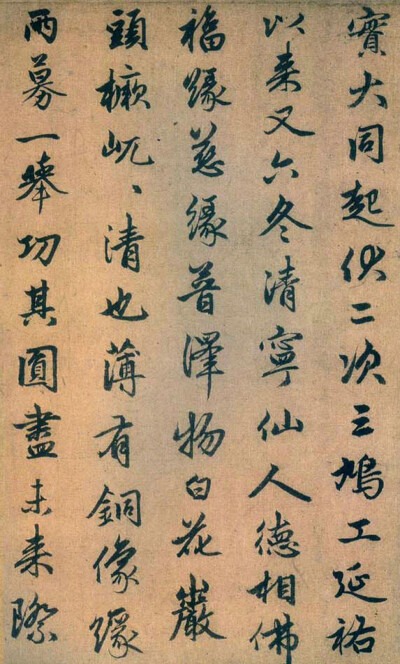 實大同起伏二次三鳩工延祐
以来又六冬清寧仙人德相佛
福緣慈緣普澤物白花巖
頭橛屼〻清也薄有銅像緣
両募一舉功其圓盡未来際